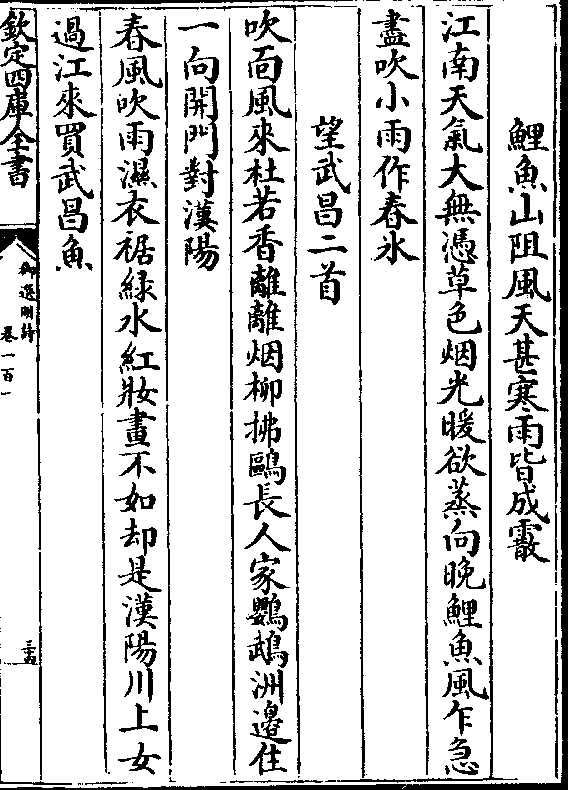 鯉魚山阻風天甚寒雨皆成霰
江南天氣大無憑草色烟光暖欲蒸向晚鯉魚風乍急
盡吹小雨作春氷
望武昌二首
吹面風來杜若香離離烟柳拂鷗長人家鸚鵡洲邊住
一向開門對漢陽
春風吹雨濕衣裾緑水紅妝畫不如却是漢陽川上女
過江來買武昌魚
欽定四庫全書
御選明詩
卷一百一
三十四